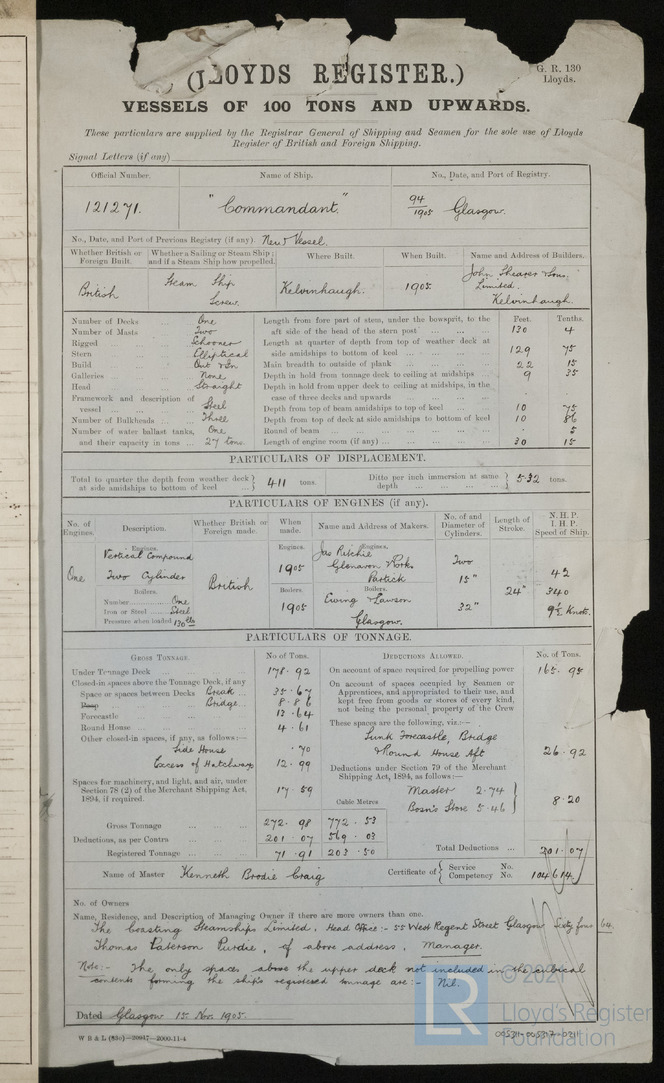 (LLOYDS REGISTER.)
G. R. 130
Lloyds.
VESSELS OF 100 TONS AND UPWARDS.
These particulars are supplied by the Registrar General of Shipping and Seamen for the sole use of Lloyds
Register of British and Foreign Shipping.
Signal Letters (if any)
Official Number. Name of Ship. No., Date, and Port of Registry.
121271. "Commandant." 94/1905 Glasgow.
No., Date, and Port of Previous Registry (if any). New Vessel.
Whether British or Foreign Built. Whether a Sailing or Steam Ship; and if a Steam Ship how propelled. Where Built. When Built. Name and Address of Builders.
British Steam Ship Screw. Kelvinhaugh. 1905 John Shearer & Sons. Limited. Kelvinhaugh.
Feet. Tenths.
Number of Decks ... One
Number of Masts ... Two
Rigged ... Schooner
Stern ... Elliptical
Build ... Out & In
Galleries ... None
Head ... Straight
Framework and description of vessel ... Steel
Number of Bulkheads ... Three
Number of water ballast tanks, One
and their capacity in tons ... 27 tons.
Length from fore part of stem, under the bowsprit, to the aft side of the head of the stern post 130 4
Length at quarter of depth from top of weather deck at side amidships to bottom of keel 129 75
Main breadth to outside of plank 22 15
Depth in hold from tonnage deck to ceiling at midships 9 35
Depth in hold from upper deck to ceiling at midships, in the case of three decks and upwards
Depth from top of beam amidships to top of keel 10 75
Depth from top of deck at side amidships to bottom of keel 10 86
Round of beam 5
Length of engine room (if any) 30 15
PARTICULARS OF DISPLACEMENT.
Total to quarter the depth from weather deck at side amidships to bottom of keel 411 tons. Ditto per inch immersion at same depth 5.32 tons.
PARTICULARS OF ENGINES (if any).
No. of Engines. Description. Whether British or Foreign made. When made. Name and Address of Makers. No. of and Diameter of Cylinders. Length of Stroke. N. H. P. I. H. P. Speed of Ship.
Engines. Engines. Engines.
One Vertical Compound Two Cylinder British 1905 Jas Ritchie Glenavon Works Partick Two 15" 32" 24" 42 340 9½ Knots.
Boilers. Boilers. Boilers.
Number One
Iron or Steel Steel
Pressure when loaded 130 lbs
1905 Ewing Lawson Glasgow.
PARTICULARS OF TONNAGE.
GROSS TONNAGE. No of Tons.
Under Tonnage Deck 178.92
Closed-in spaces above the Tonnage Deck, if any
Space or spaces between Decks Break 35.67
Poop Bridge 8.86
Forecastle 13.64
Round House 4.61
Other closed-in spaces, if any, as follows:—
Side House .70
Excess of Hatchways 12.99
Spaces for machinery, and light, and air, under Section 78 (2) of the Merchant Shipping Act, 1894, if required. 17.59
Cubic Metres
Gross Tonnage 272.98 772.53
Deductions, as per Contra 201.07 569.03
Registered Tonnage 71.91 203.50
DEDUCTIONS ALLOWED. No. of Tons.
On account of space required for propelling power 165.95
On account of spaces occupied by Seamen or Apprentices, and appropriated to their use, and kept free from goods or stores of every kind, not being the personal property of the Crew
These spaces are the following, viz.:—
Sunk Forecastle, Bridge
& Round House Aft 26.92
Deductions under Section 79 of the Merchant Shipping Act, 1894, as follows:—
Master 2.74
Bosn's Store 5.46
8.20
Total Deductions ... 201.07
Name of Master Kenneth Brodie Craig Certificate of Service No. Competency No. 104614
No. of Owners
Name, Residence, and Description of Managing Owner if there are more owners than one.
The Coasting Steamships Limited, Head Office :- 55 West Regent Street Glasgow Sixty four 64
Thomas Paterson Purdie, of above address, Manager.
Note:- The only spaces above the upper deck not included in the cubical
contents forming the ship's registered tonnage are :- Nil.
Dated Glasgow 15 Nov. 1905.
© 2021
LR Lloyd's Register
Foundation